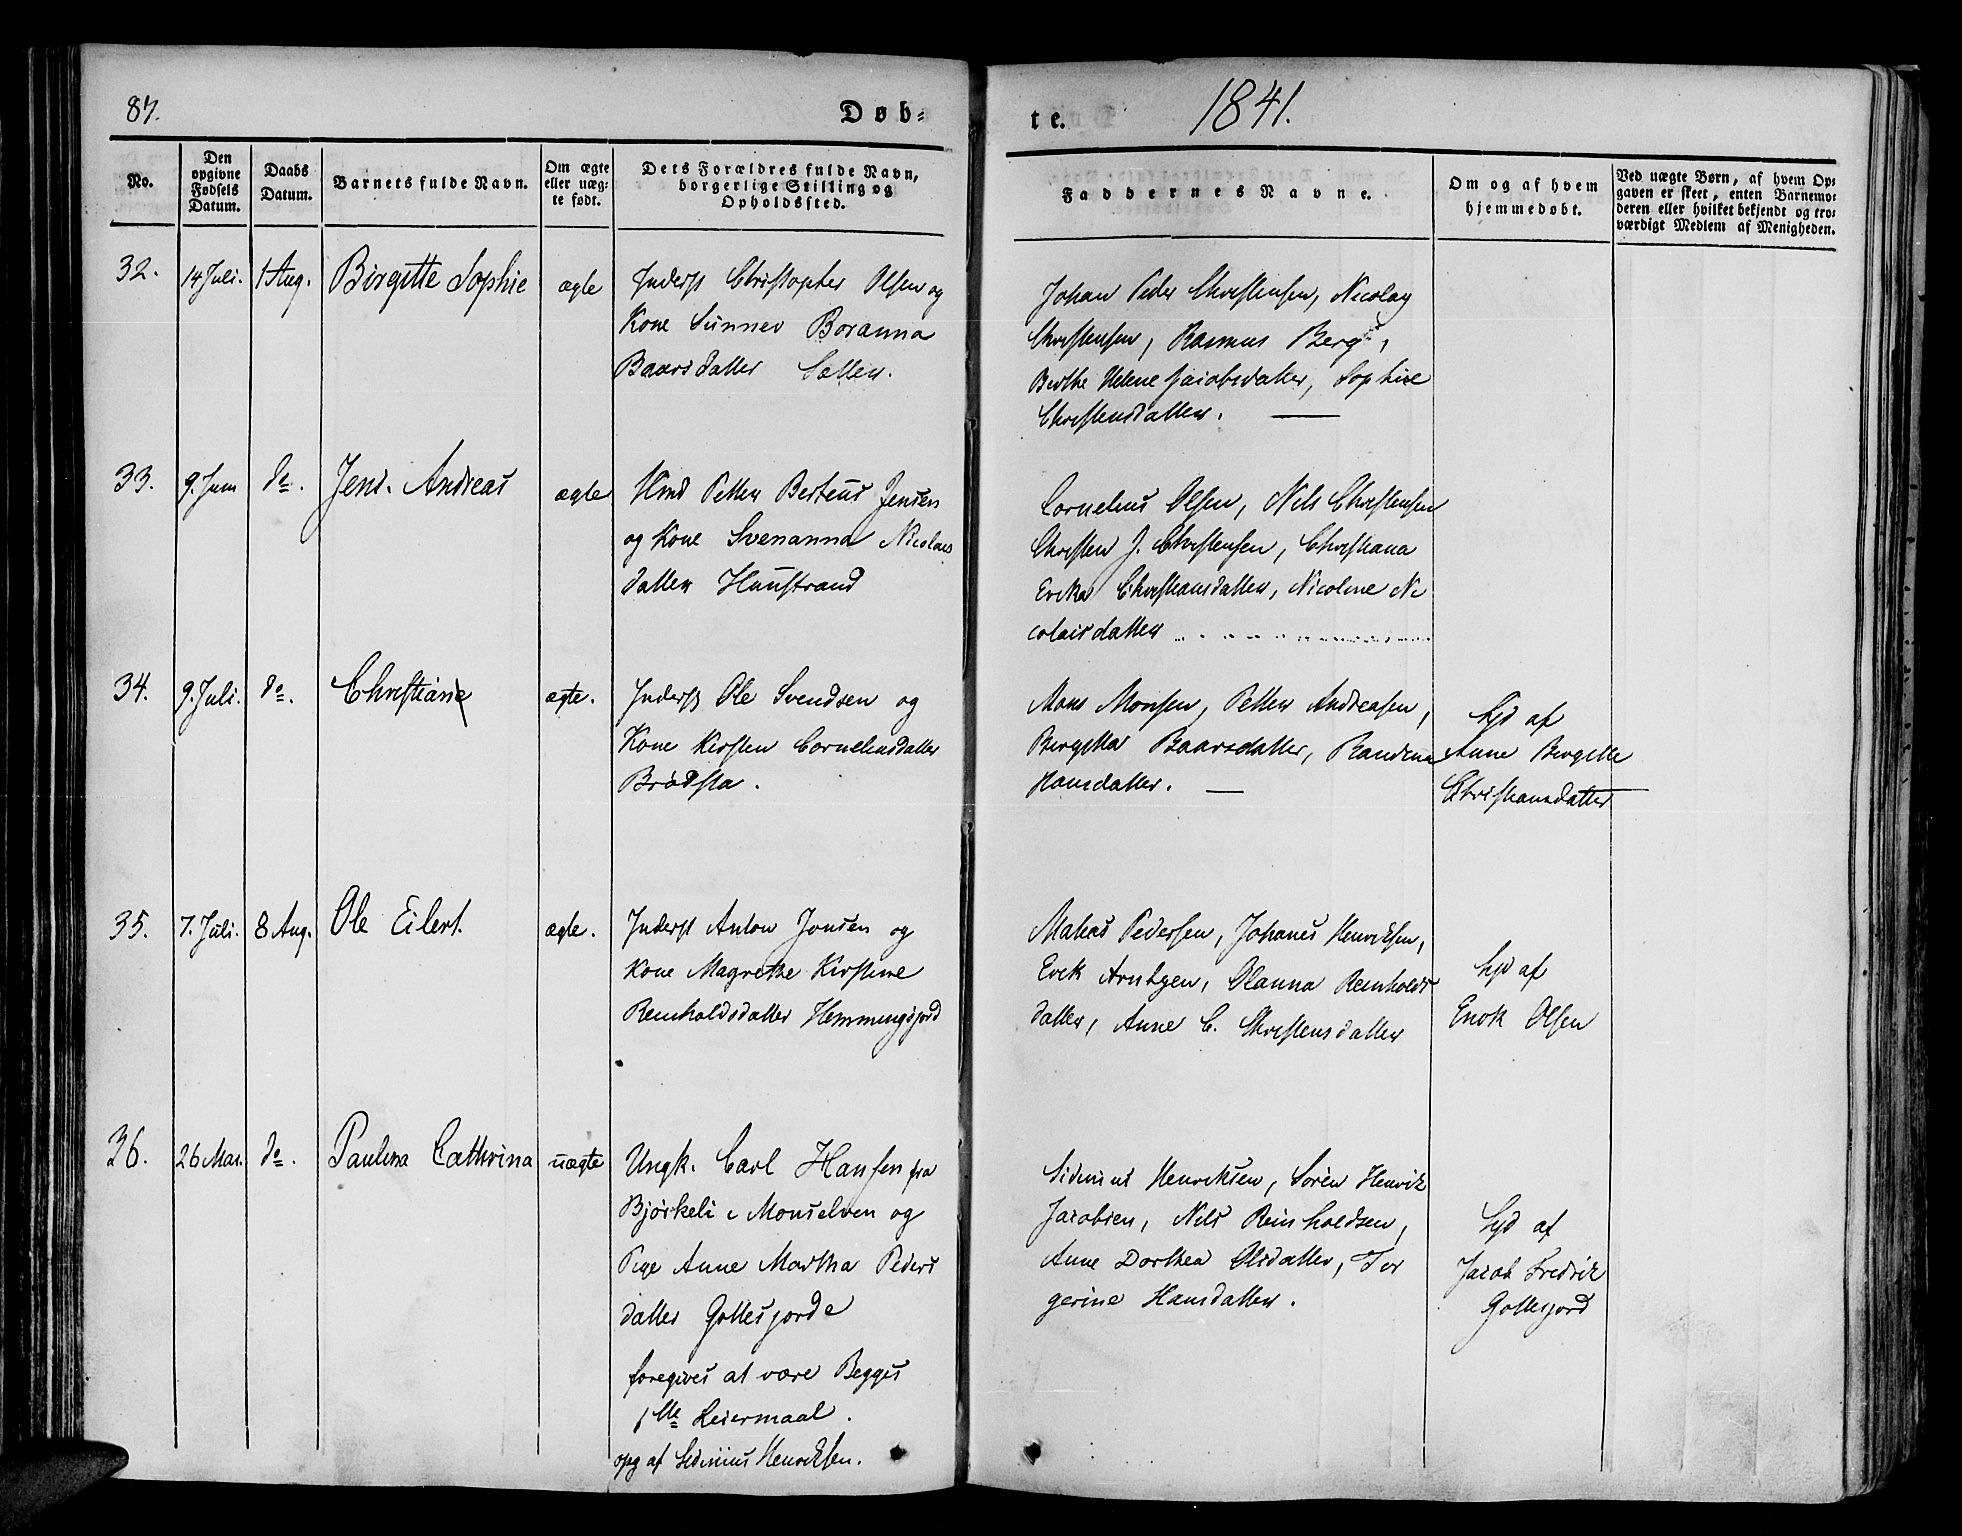 87.
Døb-
te.
1841.
No.
Den opgivne Fødsels Datum.
Daabs Datum.
Barnets fulde Navn.
Om ægte eller uæg-te født.
Dets Forældres fulde Navn, borgerlige Stilling og Opholdssted.
Faddernes Navne.
Om og af hvem hjemmedøbt.
Ved uægte Børn, af hvem Op-gaven er skeet, enten Barnemo-deren eller hvilket bekjendt og tro-værdigt Medlem af Menigheden.
32.
14 Juli.
1 Aug.
Birgitte Sophie
ægte
Inderst Christopher Olsen og
Kone Sünnev Boranna
Baarsdatter
Johan Peder Christensen, Nicolay
Christensen, Rasmus Berg,
Berthe Helene Jacobsdatter, Sophie
Christensdatter.
33.
9. Juni
do.
Jens Andreas
ægte
Mnd Petter Berteus Jensen
og Kone Svenanna Nicolais
datter
Cornelius Olsen, Nils Christensen
Christen J. Christensen, Christiana
Erika Christiansdatter, Nicoline Ni
colaisdatter
34.
9. Juli.
do.
Christiane
ægte.
Inderst Ole Svendsen og
Kone Kirsten Corneliusdatter
Brödsta.
Mons Monsen, Petter Andreasen,
Bergitta Baarsdatter, Randina
Hansdatter.
hjd af
Anne Bergitte
Christiansdatter
35.
7. Juli.
8 Aug.
Ole Eilert.
ægte.
Inderst Anton Jonsen og
Kone Magrethe Kirstine
Reinholdsdatter Hemmingsjord
Matias Pedersen, Johanes Henriksen,
Erik Arntzen, Olanna Reinholds
datter, Anne C. Christensdatter
hjd af
Enok Olsen
36.
26 Mai.
do.
Paulina Cathrina
uægte
Ungk. Carl Hansen fra
Bjørkeli i Monselven og
Pige Anne Martha Peders
datter Gottesjorde
foregives at være Begges
1ste Leiermaal.
opg af Sidinius Henriksen.
Sidinius Henriksen, Sören Henrik
Jacobsen, Nils Reinholdsen,
Anne Dorthea Olsdatter, Tor
gerine Hansdatter.
hjd af
Jacob Fredrik
Gottesjord